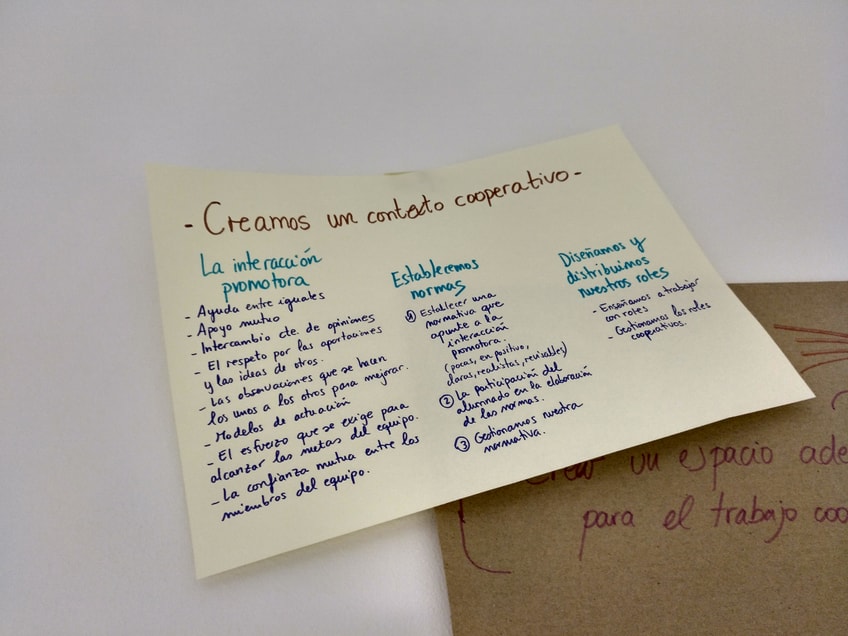 - Creamos un contexto cooperativo -
La interacción
promotora
- Ayuda entre iguales
- Apoyo mutuo
- Intercambio cte. de opiniones
- El respeto por las aportaciones
y las ideas de otros.
- Las observaciones que se hacen
los unos a los otros para mejorar.
- Modelos de actuación
- El esfuerzo que se exige para
alcanzar las metas del equipo.
- La confianza mutua entre los
miembros del equipo.
Establecemos
normas
① Establecer una
normativa que
apunte a la
interacción
promotora.
(pocas, en positivo,
claras, realistas, revisables)
② La participación del
alumnado en la elaboración
de las normas.
③ Gestionamos nuestra
normativa.
Diseñamos y
distribuimos
nuestros roles
- Enseñamos a trabajar
con roles
- Gestionamos los roles
cooperativos.
Crear un espacio ade
para el trabajo coo